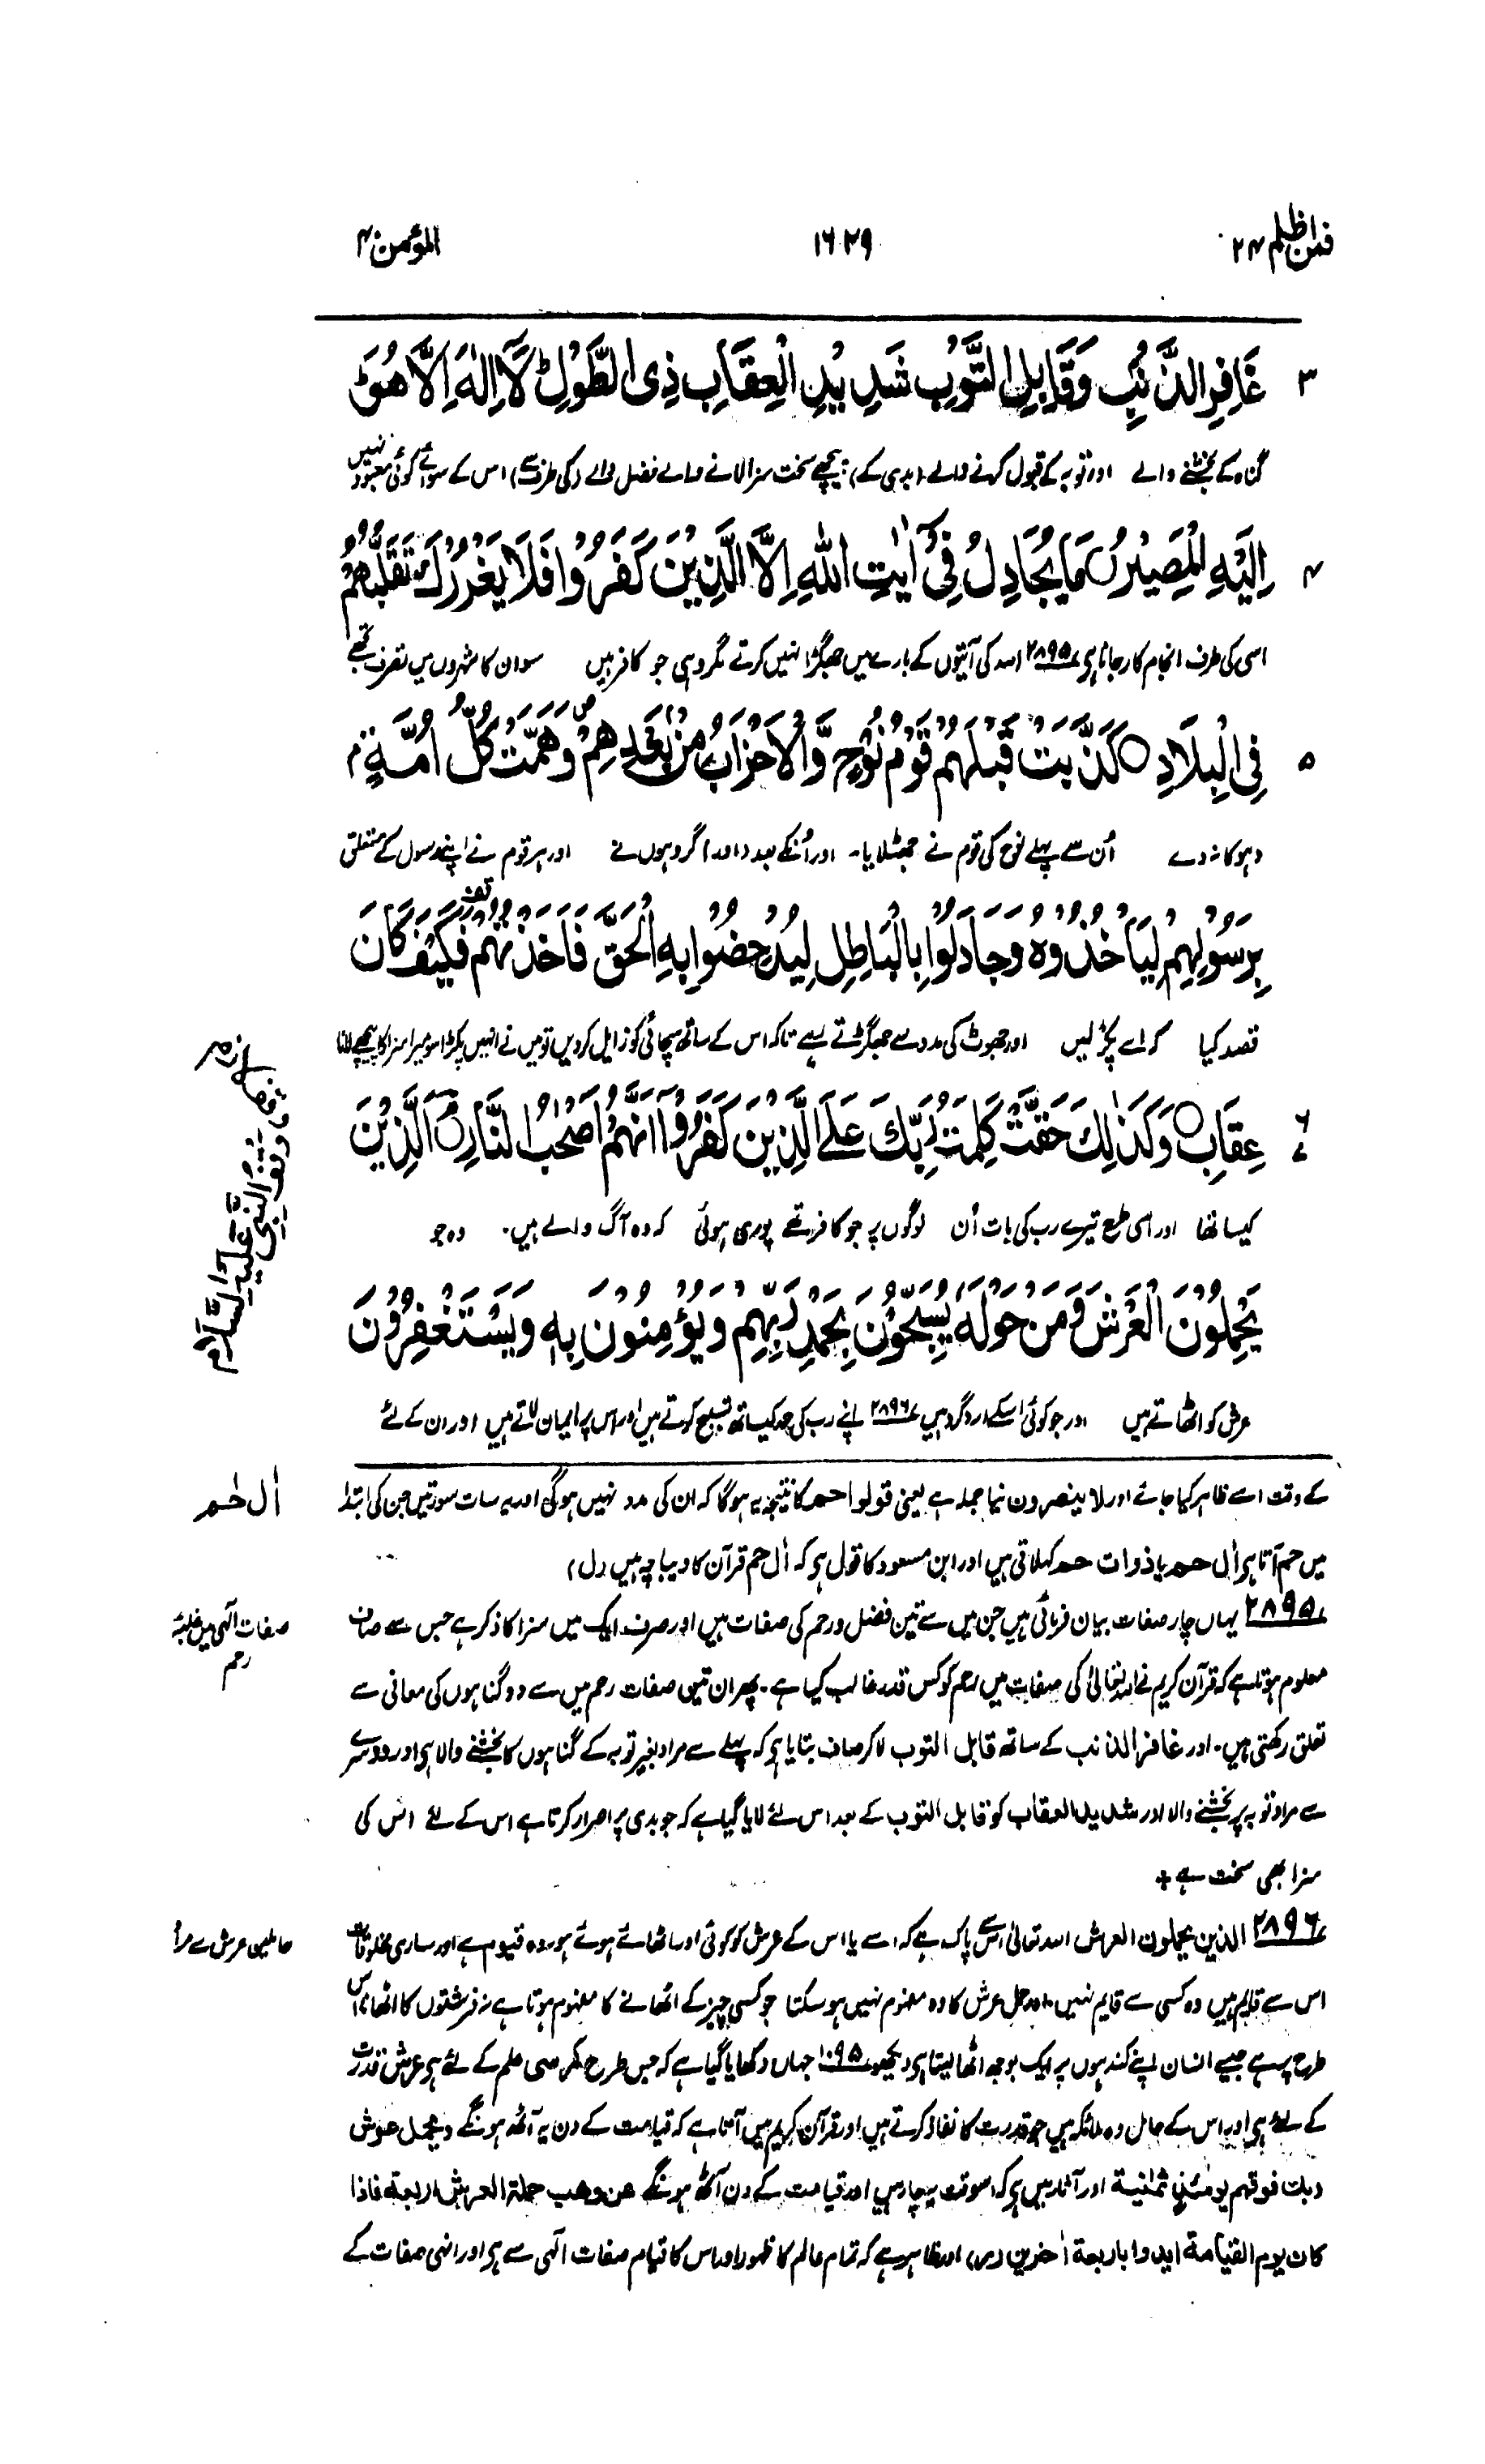 فمن اظلم ۲۴
۱۶۲۹
المؤمن ۴۰
۳ غَافِرِ الذَّنْۢبِ وَقَابِلِ التَّوْبِ شَدِيْدِ الْعِقَابِ ذِى الطَّوْلِ ؕ لَاۤ اِلٰهَ اِلَّا هُوَ ؕ
گناہ کے بخشنے والے اور توبہ کے قبول کرنے والے (بدی کے) پیچھے سخت سزا لانے والے فضل والے (کی طرف سے) اس کے سوائے کوئی معبود نہیں
۴ اِلَيْهِ الْمَصِيْرُ ○ مَا يُجَادِلُ فِىْۤ اٰيٰتِ اللّٰهِ اِلَّا الَّذِيْنَ كَفَرُوْا فَلَا يَغْرُرْكَ تَقَلُّبُهُمْ
اسی کی طرف انجام کار جانا ہی ۲۸۹۵ اللہ کی آیتوں کے بارے میں جھگڑا نہیں کرتے مگر وہی جو کافر ہیں سو ان کا شہروں میں تصرف تجھے
۵ فِى الْبِلَادِ ○ كَذَّبَتْ قَبْلَهُمْ قَوْمُ نُوْحٍ وَّالْاَحْزَابُ مِنْۢ بَعْدِهِمْ ۪ وَهَمَّتْ كُلُّ اُمَّةٍۭ
دہوکا نہ دے اُن سے پہلے نوح کی قوم نے جھٹلایا۔ اور اُنکے بعد (اور) گروہوں نے اور ہر قوم نے اپنے رسول کے متعلق
بِرَسُوْلِهِمْ لِيَاْخُذُوْهُ وَجَادَلُوْا بِالْبَاطِلِ لِيُدْحِضُوْا بِهِ الْحَقَّ فَاَخَذْتُهُمْ فَكَيْفَ كَانَ
قصد کیا کہ اسے پکڑ لیں اور جھوٹ کی مدد سے جھگڑتے رہے تاکہ اس کے ساتھ سچائی کو زایل کر دیں تو میں نے انہیں پکڑا سو میرا سزا کا پیچھے لانا
۶ ۷ عِقَابِ ○ وَكَذٰلِكَ حَقَّتْ كَلِمَتُ رَبِّكَ عَلَى الَّذِيْنَ كَفَرُوْۤا اَنَّهُمْ اَصْحٰبُ النَّارِ ○ اَلَّذِيْنَ
کیسا تھا اور اسی طرح تیرے رب کی بات اُن لوگوں پر جو کافر تھے پوری ہوئی کہ وہ آگ والے ہیں۔ وہ جو
يَحْمِلُوْنَ الْعَرْشَ وَمَنْ حَوْلَهٗ يُسَبِّحُوْنَ بِحَمْدِ رَبِّهِمْ وَيُؤْمِنُوْنَ بِهٖ وَيَسْتَغْفِرُوْنَ
عرش کو اٹھاتے ہیں اور جو کوئی اسکے ارد گرد ہیں ۲۸۹۶ اپنے رب کی حمد کیساتھ تسبیح کرتے ہیں اور اس پر ایمان لاتے ہیں اور ان کے لئے
وقف النبی علیہ السلام
کے وقت اسے ظاہر کیا جائے اور لا ینصرون نیا جملہ ہے یعنی قولوا حم کا نتیجہ یہ ہوگا کہ ان کی مدد نہیں ہوگی اور یہ سات سورتیں جن کی ابتدا
اٰل حٰم
میں حم آتا ہی اٰل حم یا ذوات حم کہلاتی ہیں اور ابن مسعود کا قول ہی کہ اٰل حم قرآن کا دیباچہ ہیں (ل)
۲۸۹۵ یہاں چار صفات بیان فرمائی ہیں جن میں سے تین فضل و رحم کی صفات ہیں اور صرف ایک میں سزا کا ذکر ہے جس سے صاف
صفات الٰہی میں غلبہ رحم
معلوم ہوتا ہے کہ قرآن کریم نے اللہ تعالیٰ کی صفات میں رحم کو کس قدر غالب کیا ہے۔ پھر ان تین صفات رحم میں سے دو گناہوں کی معافی سے
تعلق رکھتی ہیں۔ اور غافر الذنب کے ساتھ قابل التوب لاکر صاف بتایا ہی کہ پہلے سے مراد بغیر توبہ کے گناہوں کا بخشنے والا ہی اور دوسرے
سے مراد توبہ پر بخشنے والا اور شدید العقاب کو قابل التوب کے بعد اس لئے لایا گیا ہے کہ جو بدی پر اصرار کرتا ہے اس کے لئے اس کی
سزا بھی سخت ہے +
۲۸۹۶ الذین یحملون العرش اللہ تعالیٰ اس سے پاک ہے کہ اسے یا اس کے عرش کو کوئی اور اٹھائے ہوئے ہو وہ قیوم ہے اور ساری مخلوقات
حاملین عرش سے مراد
اس سے قایم ہیں وہ کسی سے قایم نہیں۔ اور حمل عرش کا وہ مفہوم نہیں ہو سکتا جو کسی چیز کے اٹھانے کا مفہوم ہوتا ہے نہ فرشتوں کا اٹھانا اس
طرح پر ہے جیسے انسان اپنے کندہوں پر ایک بوجھ اٹھا لیتا ہی دیکھو ۱۰۹۵ جہاں دکھایا گیا ہے کہ جس طرح کرسی علم کے لئے ہی عرش قدرت
کے لئے ہی اور اس کے حامل وہ ملائکہ ہیں جو قدرت کا نفاذ کرتے ہیں اور قرآن کریم میں آتا ہے کہ قیامت کے دن یہ آٹھ ہونگے ویحمل عرش
ربک فوقہم یومئذ ثمٰنیۃ اور آثار میں ہی کہ اسوقت یہ چار ہیں اور قیامت کے دن آٹھ ہونگے عن وھب حملۃ العرش اربعۃ فاذا
کان یوم القیٰامۃ ایدوا باربعۃ اٰخرین اور ظاہر ہے کہ تمام عالم کا ظہور اور اس کا قیام صفات الٰہی سے ہی اور انہی صفات کے